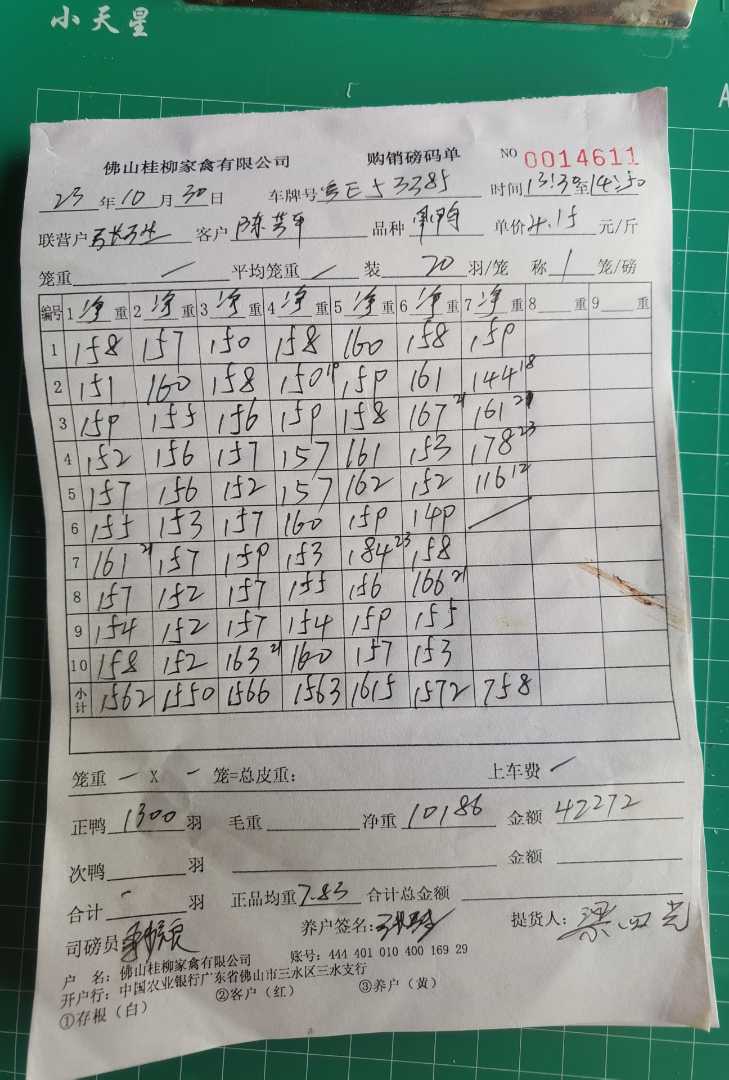 小天星
佛山桂柳家禽有限公司 购销磅码单 NO 0014611
23 年 10 月 30 日 车牌号 粤E53385 时间 13:30至14:50
联营户 客户 陈 品种 单价 4.15 元/斤
笼重 — 平均笼重 — 装 20 羽/笼 称 1 笼/磅
编号 1 净 重 2 净 重 3 净 重 4 净 重 5 净 重 6 净 重 7 净 重 8 重 9 重
1 158 157 150 158 160 158 159
2 151 160 158 150 19 159 161 144 18
3 159 155 156 159 158 167 21 161 21
4 152 156 157 157 161 153 178 23
5 157 156 152 157 162 152 116 12
6 155 153 157 160 159 149
7 161 21 157 159 153 184 23 158
8 157 152 157 155 156 166 21
9 154 152 157 154 159 155
10 158 152 163 21 160 157 153
小计 1562 1550 1566 1563 1615 1572 758
笼重 — X — 笼=总皮重: 上车费 —
正鸭 1300 羽 毛重 净重 10186 金额 42272
次鸭 羽 金额
合计 - 羽 正品均重 7.83 合计总金额
司磅员 养户签名: 提货人: 梁
户 名: 佛山桂柳家禽有限公司 账号: 444 401 010 400 169 29
开户行: 中国农业银行广东省佛山市三水区三水支行
①存根（白） ②客户（红） ③养户（黄）